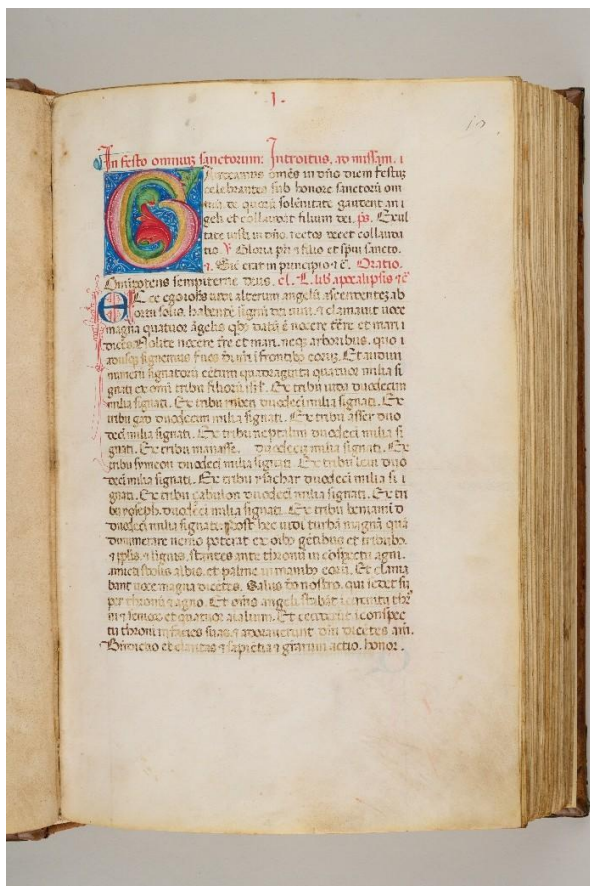 .I.
10
In festo omnium sanctorum: Introitus. ad missam. i
Gaudeamus om̄es in dn̄o diem festuȝ
celebrantes sub honore sanctoꝝ om
niū de quoꝝ solēnitate gaudent an i
geli et collaudāt filium dei. p̄s. Exul
tate iusti in dn̄o. rectos decet collauda
tio. ℣ Gloria pr̄i ⁊ filio et spūi sancto.
⁊. Sic erat in principio ⁊ c̄. Oratio.
Omnipotens sempiterne deus. el. L. lib̄ apocalipsis ⁊c̄
Ecce ego ioh̄s uidi alterum angelū ascendentez ab
ortu solis. habentē signū dei uiui. ⁊ clamauit uoce
magna quatuor āgelis qb̄s datū ē nocere t̄re et mari i
dicēs. Nolite nocere t̄re et mari. neqȝ arboribus. quo i
adusqȝ signemus suos dei nr̄i i frontibȝ eoꝝ. Et audiui
numerū signatoꝝ cētum quadraginta quatuor milia si
gnati ex om̄i tribu filioꝝ isr̄l. Ex tribu iuda duodecim
milia signati. Ex tribu ruben duodecim milia signati. Ex
tribu gad duodecim milia signati. Ex tribu asser duo
deci milia signati. Ex tribu neptalim duodeci milia si
gnati. Ex tribu manasse. duodecim milia signati. Ex
tribu symeon duodeci milia signati. Ex tribu leui duo
deci milia signati. Ex tribu ysachar duodeci milia si i
gnati. Ex tribu zabulon duodeci milia signati. Ex tri
bu yoseph. duodeci milia signati. Ex tribu beniami d
duodeci milia signati. Post hec uidi turbā magnā quā
dinumerare nemo poterat ex oīb̄ gētibus et tribubȝ
⁊ ipl̄is. ⁊ lignis. stantes ante thronū in cōspectu agni.
amicti stolis albis. et palme in manibȝ eoꝝ. Et clama
bant uoce magna dicētes. Salus dō nostro. qui sedet su
per thronū ⁊ agno. Et om̄s angeli stabāt i circuitu thr̄
ni ⁊ senioꝝ et quatuor aīalium. Et ceciderūt i conspec
tu throni in facies suas. ⁊ adorauerunt dm̄ dicētes am̄.
Bn̄dictio et claritas ⁊ sapiētia ⁊ gratiarū actio. honor.